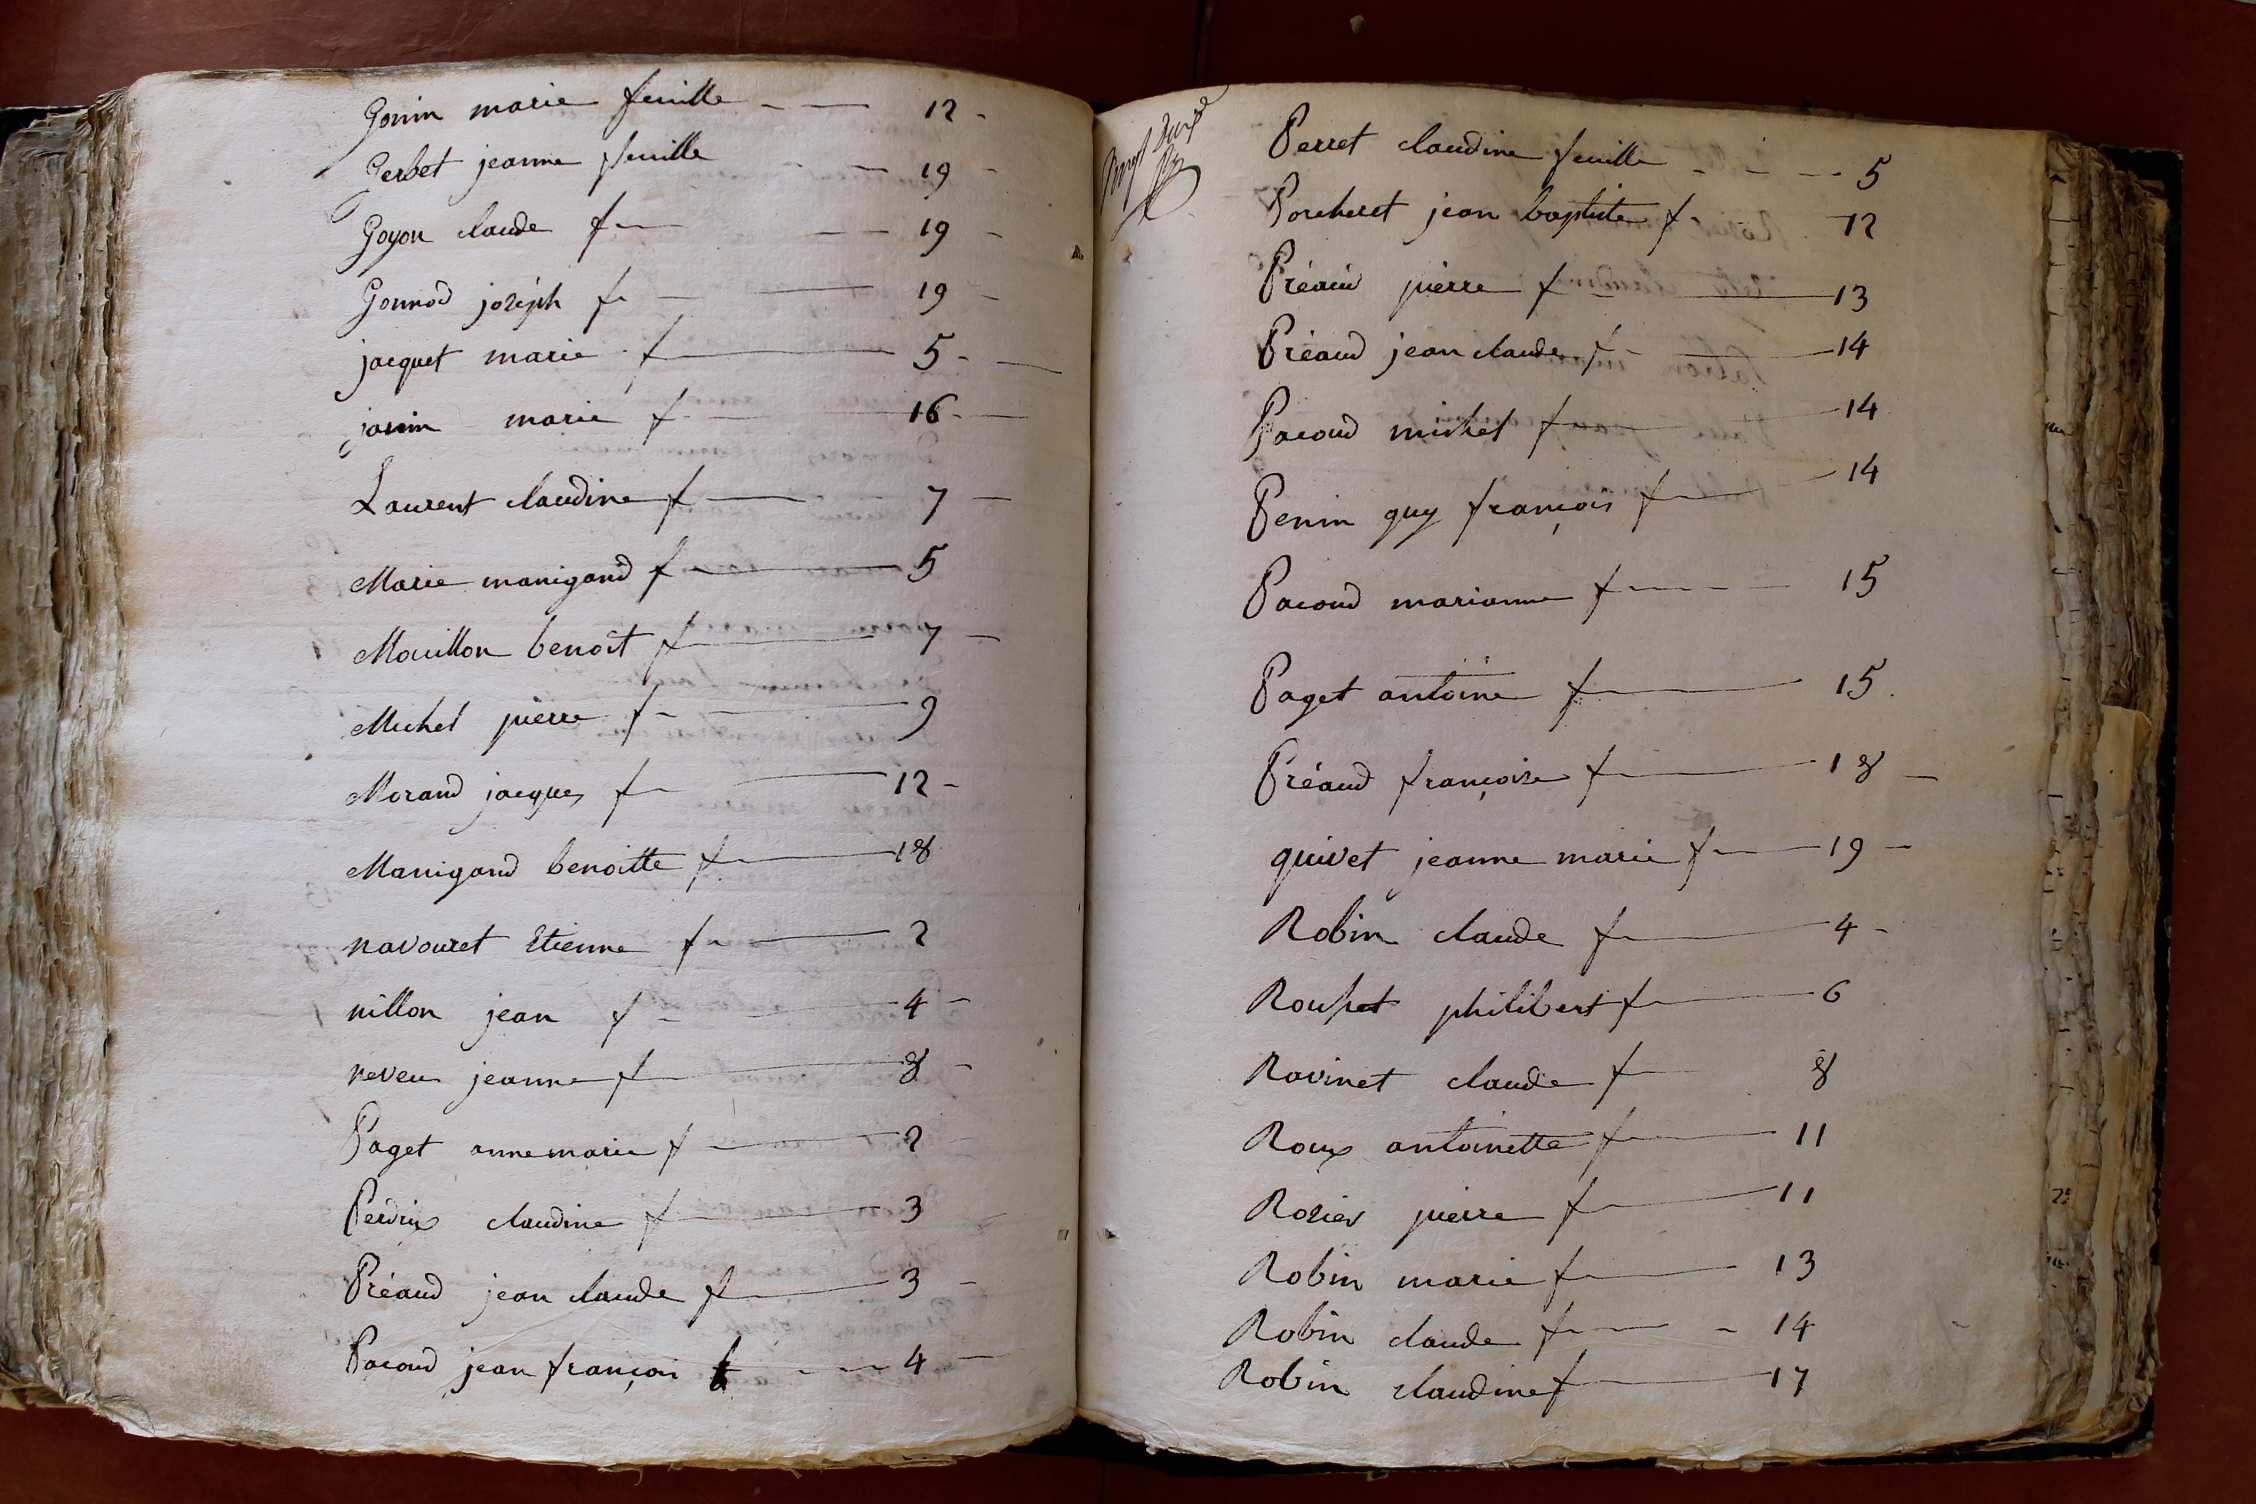 Gonin marie feuille 12
Gerbet jeanne feuille 19
Goyon claude f 19
Gonnod joséph f 19
jacquet marie f 5
janin marie f 16
Laurent claudine f 7
Marie manigand f 5
Mouillon benoît f 7
Michel pierre f 9
Morand jacques f 12
Manigand benoitte f 18
navouret Etienne f 2
nillon jean f 4
neveu jeanne f 8
Paget anne marie f 2
Perdrix claudine f 3
Préaud jean claude f 3
Pacoud jean françois f 4
vingt deux
Perret claudine feuille 5
Porcheret jean baptiste f 12
Préaud pierre f 13
Préaud jean claude f 14
Pacoud michel f 14
Penin guy françois f 14
Pacoud marianne f 15
Paget antoine f 15
Préaud françoise f 18
quivet jeanne marie f 19
Robin claude f 4
philibert f 6
Ravinet claude f 8
Roux antoinette f 11
Rozier pierre f 11
Robin marie f 13
Robin claude f 14
Robin claudine f 17